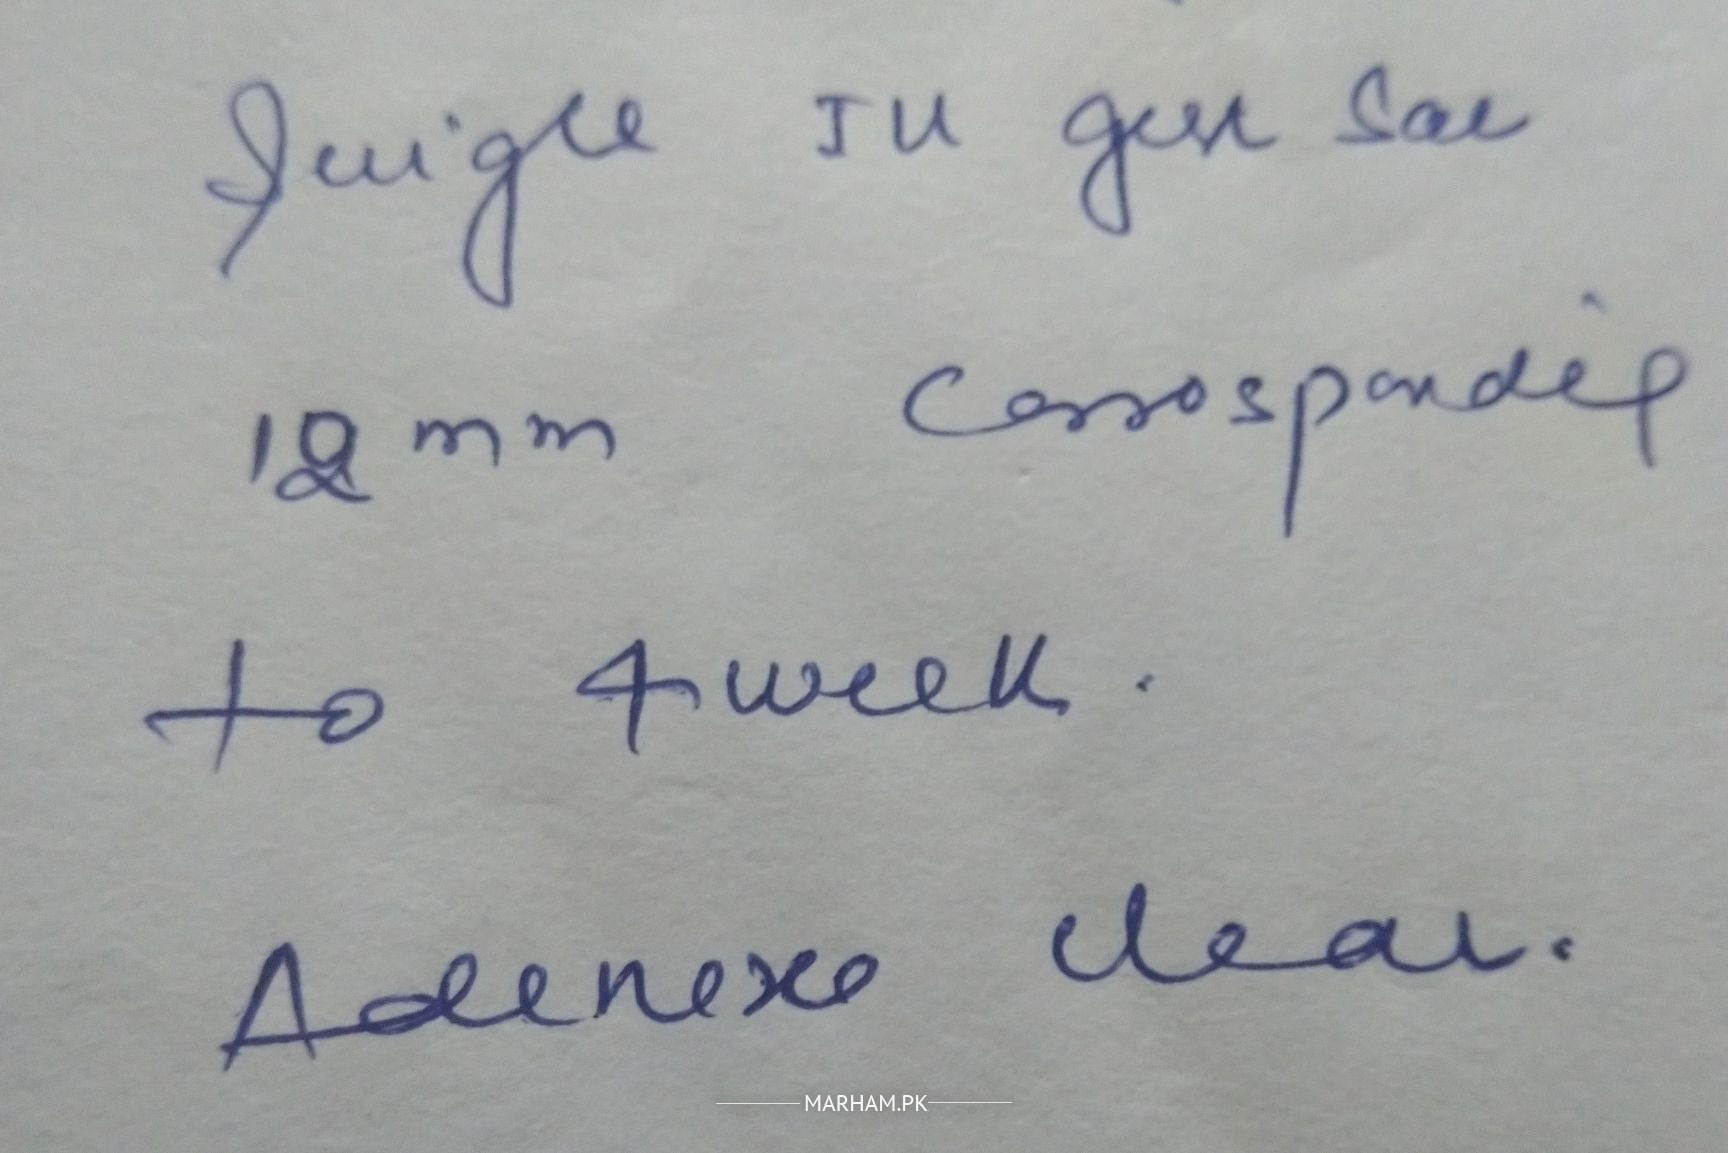 Single IU gest Sac
12 mm Corrosponding
to 4 week.
Adenexe clear.
MARHAM.PK